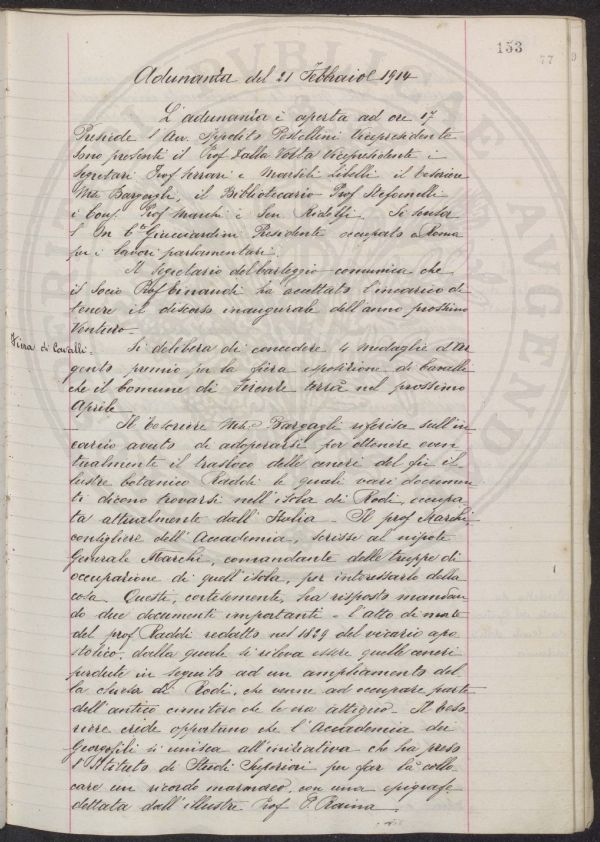 153
77
9
Adunanza del 21 Febbraio 1914
L'adunanza è aperta ad ore 17
Presiede l'Avv. Ippolito Pestellini Vicepresidente
sono presenti il Prof Dalla Volta Vicepresidente i
Segretari Prof Ferrari e Marsili Libelli il Tesoriere
Mse Bargagli, il Bibliotecario Prof Stefanelli
i Cons. Prof Marchi e Sen Ridolfi. Si scusa
l'On Cte Guicciardini Presidente occupato a Roma
per i lavori parlamentari.
Il Segretario del carteggio comunica che
il Socio Prof Einaudi ha accettato l'incarico di
tenere il discorso inaugurale dell'anno prossimo
Venturo.
Fiera di Cavalli.
Si delibera di concedere 4 medaglie d'Ar
gento premio per la fiera esposizione di cavalli
che il Comune di Firenze terrà nel prossimo
Aprile
Il Tesoriere Mse Bargagli riferisce sull'in
carico avuto di adoperarsi per ottenere even
tualmente il trasloco delle ceneri del fu il
lustre botanico Raddi le quali vari documen
ti dicono trovarsi nell'isola di Rodi, occupa
ta attualmente dall'Italia. Il prof Marchi,
consigliere dell'Accademia, scrisse al nipote
Generale Marchi, comandante delle truppe di
occupazione di quell'isola, per interessarlo della
cosa. Questi, cortesemente, ha risposto mandan
do due documenti importanti. l'atto di morte
del prof Raddi redatto nel 1829 del vicario apo
stolico, dalla quale si rileva essere quelle ceneri
perdute in seguito ad un ampliamento del
la chiesa di Rodi, che venne ad occupare parte
dell'antico cimitero che le era attiguo. Il Teso
riere crede opportuno che l'Accademia dei
Georgofili si unisca all'iniziativa che ha preso
l'Istituto di Studi Superiori per far là collo
care un ricordo marmoreo, con una epigrafe
dettata dall'illustre Prof P. Rajna.